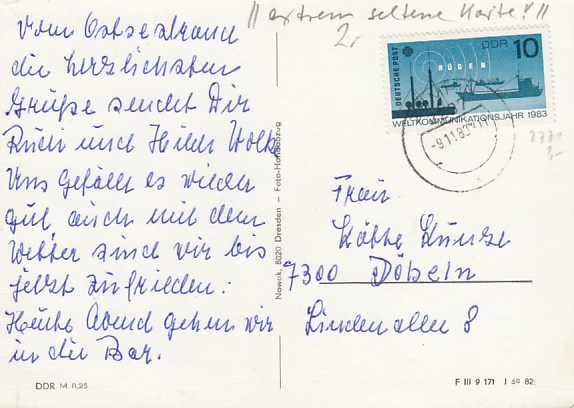 || extrem seltene Karte! ||
2,-
Vom Ostseestrand
die herzlichsten
Grüße sendet Dir
Rudi und Hilde Wolf
Uns gefällt es wieder
gut, auch mit dem
Wetter sind wir bis
jetzt zufrieden.
Heute Abend gehen wir
in die Bar.
DDR M 0,25
Nowak, 8020 Dresden – Foto-Handabzug
DEUTSCHE POST
DDR 10
RÜGEN
WELTKOMMUNIKATIONSJAHR 1983
-9.11.83
Frau
Käthe Kunze
7300 Döbeln
Lindenallee 8
F III 9 171 J 69 82